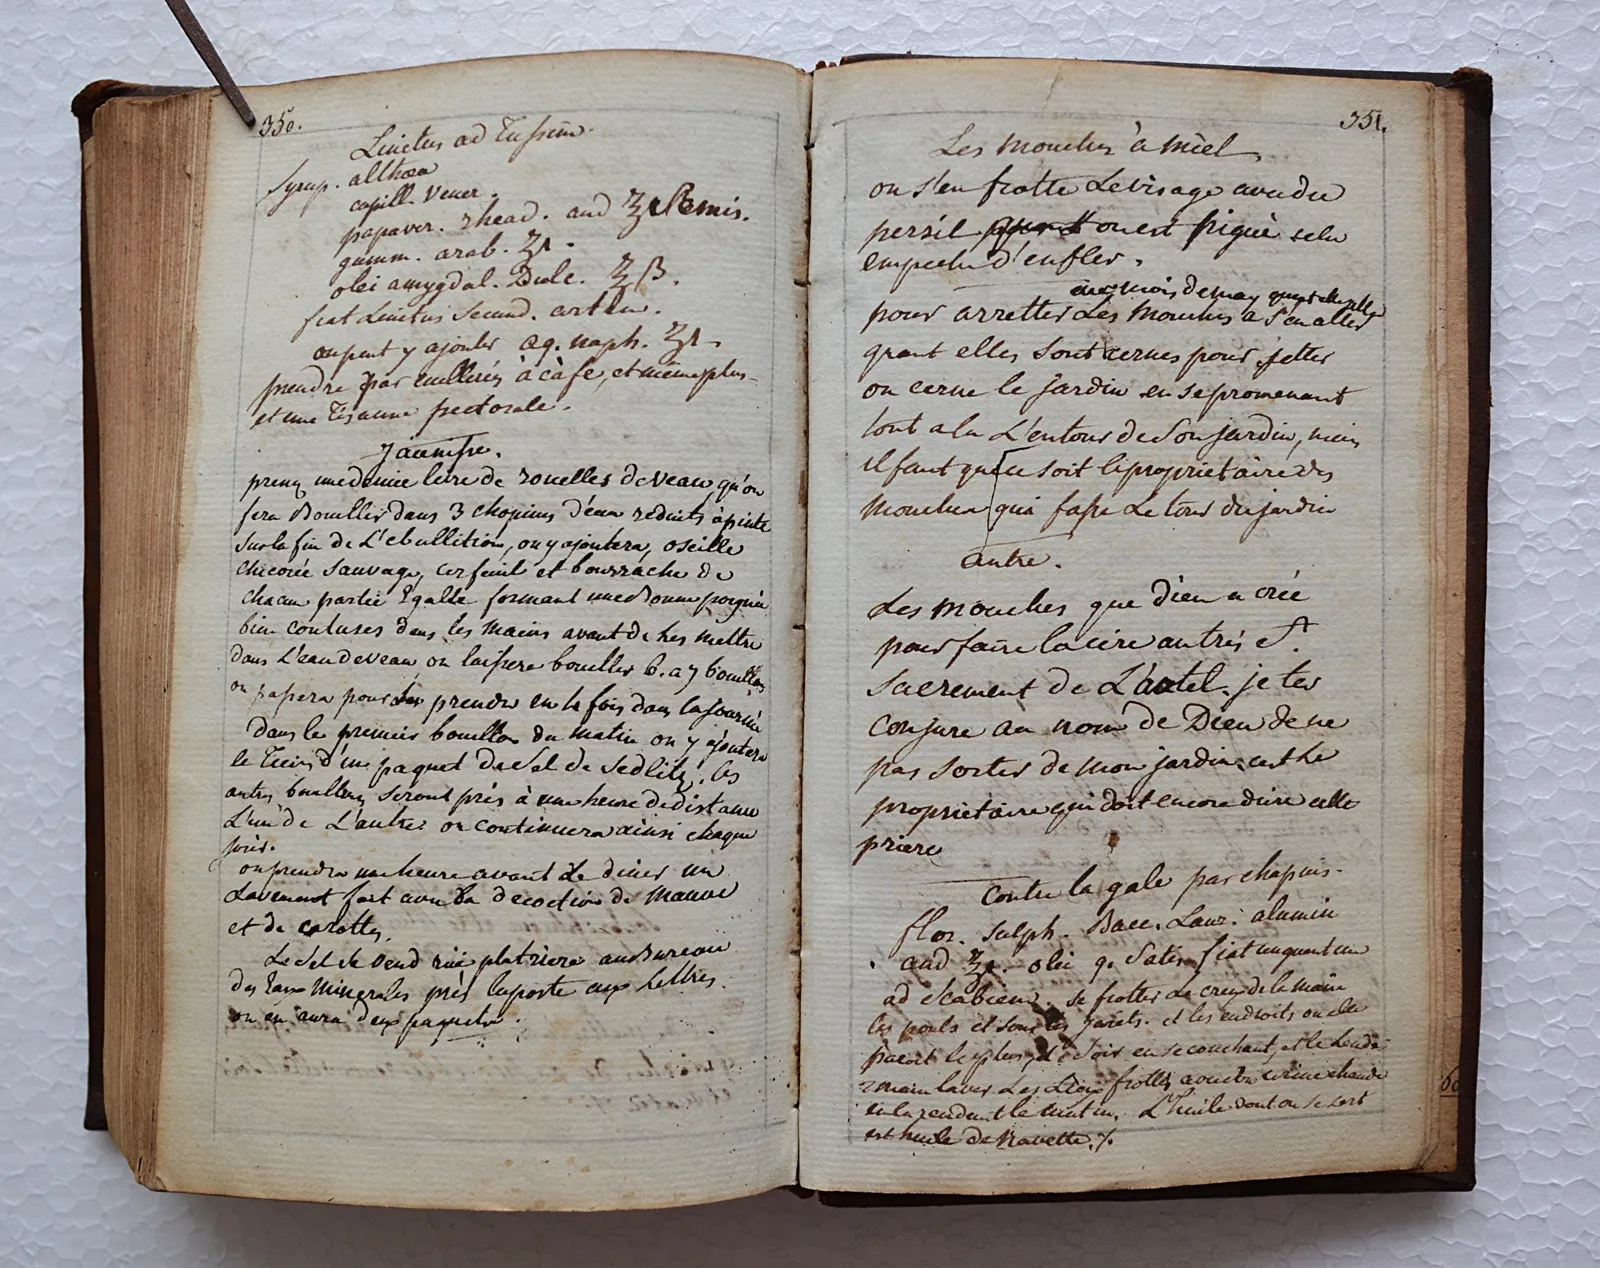 350.
Linctus ad Tussim.
Syrup. althæa
capill. Vener.
papaver. rhead. aná ℥ i & semis.
gumm. arab. ℥ i.
olei amygdal. Dulc. ℥ β.
fiat Linctus Secund. artem.
on peut y ajouter aq. naph. ℥ i.
prendre par cuillerés à cafe, et même plus
et une Tisanne pectorale.
Jaunisse.
prenez une demie livre de rouelles de Veau, qu'on
fera Bouillir dans 3 chopines d'eau reduits à pinte
Sur la fin de L'ebullition, on y ajoutera, oseille
chicorée Sauvage, cerfeuil et bourrache de
chacun partie Egalle formant une Bonne poignée
bien contuses dans les mains avant de les mettre
dans L'eau de veau, on laissera bouillir 6. a 7 bouillons
on passera pour prendre en 4 fois dans la Journée
Dans le premier bouillon du matin on y ajoutera
le Tiers d'un paquet de Sel de Sedlitz. les
autres bouillons seront pris à une heure de distance
L'un de L'autre on continuera ainsi chaque
jour.
on prendra une heure avant Le diner un
Lavement fait avec la decoction de Mauve
et de carottes.
Le Sel se Vend rüe platriere au Bureau
des Eaux Minerales près la poste aux Lettres.
on en aura deux paquets.
351.
Les Mouches à Miel
on s'en frotte Le visage avec du
persil on est piqué cela
empeche d'enfler.
mois de may quant elles
pour arretter Les Mouches a S'en aller
quant elles sont cernes pour jetter
on cerne le jardin en se promenant
tout a la L'entour de Son jardin, mais
il faut que ce soit le proprietaire des
Mouches qui fasse Le tour du jardin
autre.
Les mouches que dieu a crée
pour faire la cire au très St.
Sacrement de L'autel. je tes
conjure au nom de Dieu de ne
pas Sorter de mon jardin. cest Le
proprietaire qui doit encore dire cette
priere
Contre la gale par chapuis.
flor. Sulph. Bacc. Laur. alumin
aná ℥ i. olei q. Satis fiat unguentum
ad Scabiem. Se frotter Le creux de la Main
les pouls et sous les Jarets. et les endroits ou elle
paroit le plus, le Soir en se couchant, et le Lende-
main laver Les Lieux frottés avec de urine chaude
en la rendant le matin. L'huile dont on se sert
est huile de Navette. %